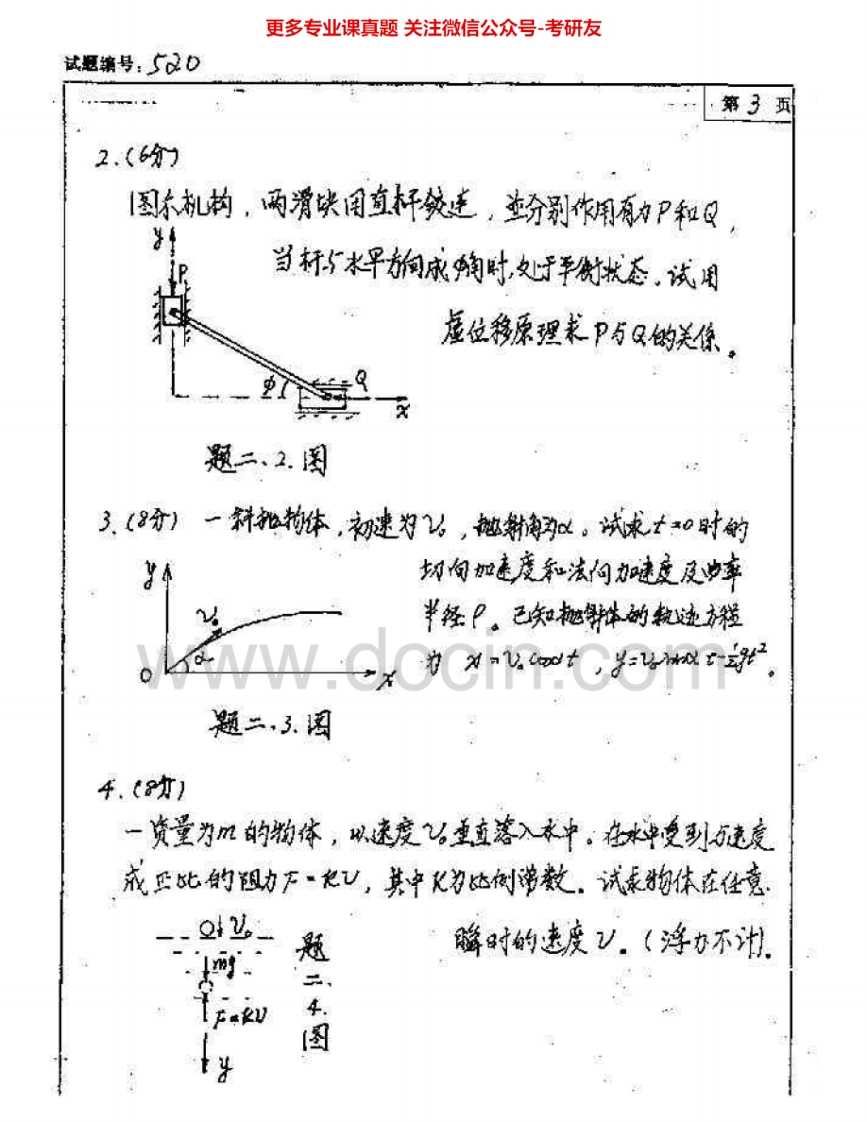 更多专业课真题 关注微信公众号-考研友
试题编号：520
第 3 页
2.(6分)
图示机构，两滑块用直杆铰连，並分别作用有力P和Q，
当杆与水平方向成φ角时，处于平衡状态。试用
虚位移原理求P与Q的关係。
y
P
φ
Q
x
题二、2.图
3.(8分) 一斜抛物体，初速为v₀，抛射角为α。试求t=0时的
切向加速度和法向加速度及曲率
半径ρ。已知抛射体的轨迹方程
为 x=v₀cosαt，y=v₀sinαt-½gt²。
y
v₀
α
O
x
www.docin.com
题二、3.图
4.(8分)
一质量为m的物体，以速度v₀垂直落入水中。在水中受到与速度
成正比的阻力F=KV，其中K为比例常数。试求物体在任意
瞬时的速度V。(浮力不计)。
v₀
mg
F=KV
y
题二、4.图